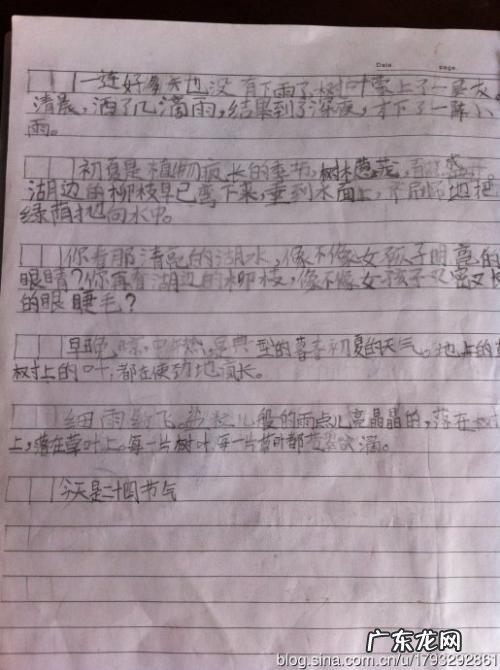 Date page
一连好多天也没有下雨了树叶蒙上了一层灰。
清晨,洒了几滴雨,结果到了深夜,才下了一阵小
雨。
初夏是植物疯长的季节,树木葱茏,百花盛开。
湖边的柳枝早已弯下来,垂到水面上,不刷刷地把
绿荫抛向水中。
你看那清亮的湖水,像不像女孩子明亮的
眼睛?你再看湖边的柳枝,像不像女孩子又密又
的眼睫毛?
早晚凉,中午热,是典型的春末初夏的天气。地上的
树上的叶,都在使劲地疯长。
细雨纷飞,般的雨点儿亮晶晶的,落在
上,落在草叶上。每一片树叶,每一片草叶都
今天是二十四节气
广东龙网
blog.sina.com.cn/u/1793292861